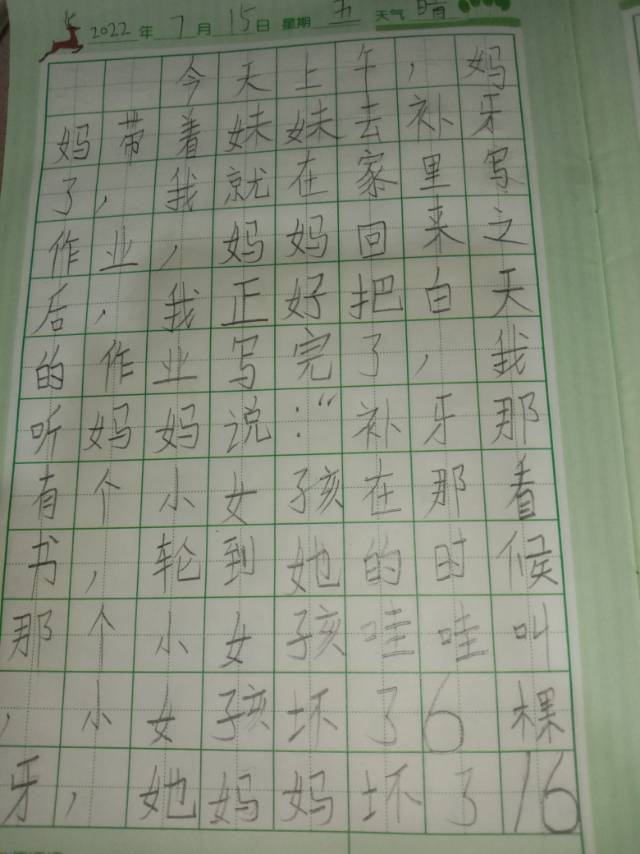 2022年7月15日 星期五 天气晴
今天上午，妈
妈带着妹妹去补牙
了，我就在家里写
作业，妈妈回来之
后，我正好把白天
的作业写完了，我
听妈妈说：“补牙那
有个小女孩在那看
书，轮到她的时候
那个小女孩哇哇叫
，小女孩坏了6棵
牙，她妈妈坏了16